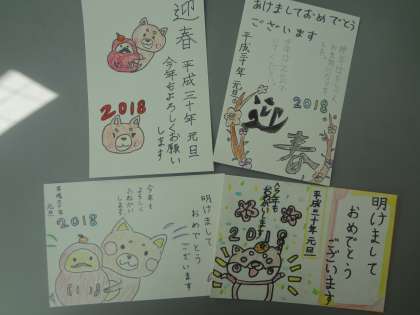 迎春
平成三十年 元旦
今年もよろしくお願い
します
2018
あけましておめでとう
ございます
平成三十年 元旦
2018
迎
春
明けまして
おめでとう
ございます
今年も
よろしく
おねがい
します
2018
明けまして
おめでとう
ございます
平成三十年 元旦
2018